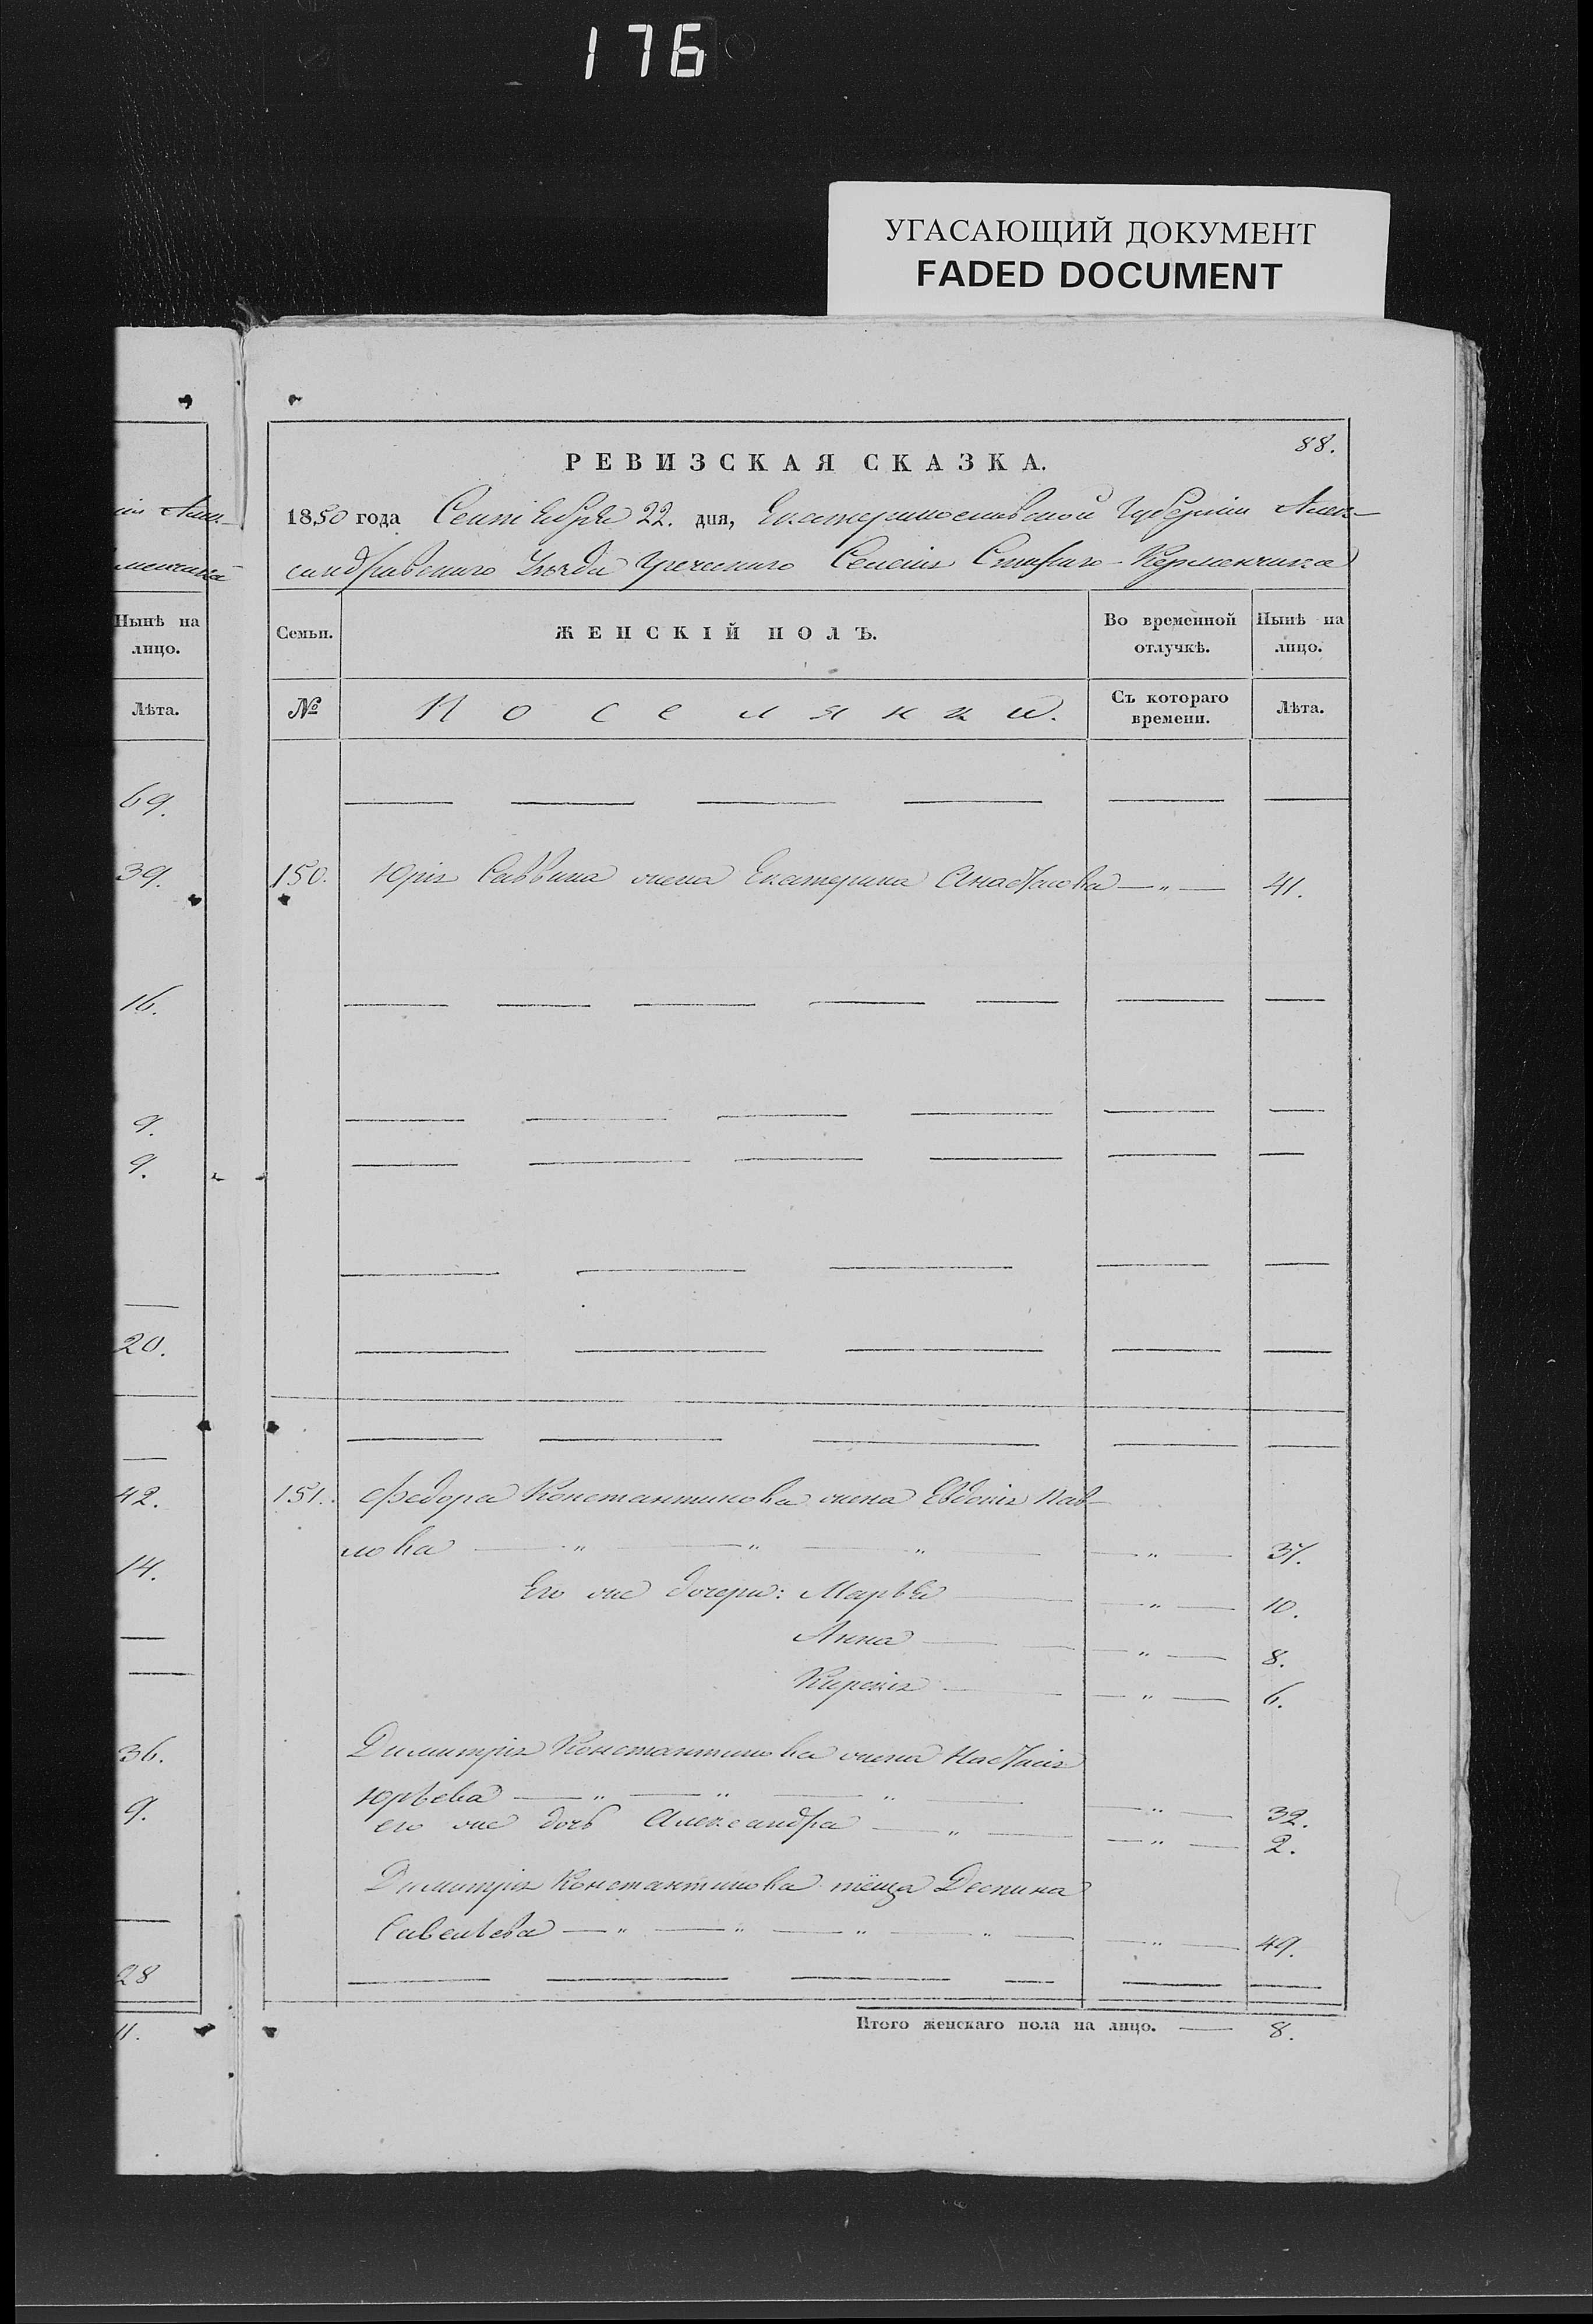 176
УГАСАЮЩИЙ ДОКУМЕНТ
FADED DOCUMENT
Нынѣ на
лицо.
Лѣта.
69.
39.
16.
9.
9.
20.
42.
14.
36.
9.
28
11.
88.
РЕВИЗСКАЯ СКАЗКА.
1850 года Сентября 22. дня, Екатеринославской Губерніи Алек-
сандравскаго Уѣзда Греческаго Селенія Стараго-Керменчика
Семьи.
ЖЕНСКІЙ ПОЛЪ.
Во временной
отлучкѣ.
Нынѣ на
лицо.
№
Поселянки.
Съ котораго
времени.
Лѣта.
150. Юрія Саввина жена Екатерина Анастасова — „ — 41.
151. Федора Константинова жена Евдокія Пав-
лова — „ — „ — „ — — „ — 37.
Его же дочери: Марья — — „ — 10.
Анна — — — „ — 8.
Кирекія — — — „ — 6.
Димитрія Константинова жена Настасія
Юрьева — „ — „ — „ — — „ — 32.
его же дочь Александра — „ — — „ — 2.
Димитрія Константинова тёща Деспина
Савельева — „ — „ — „ — „ — — „ — 49.
Итого женскаго пола на лицо. — 8.